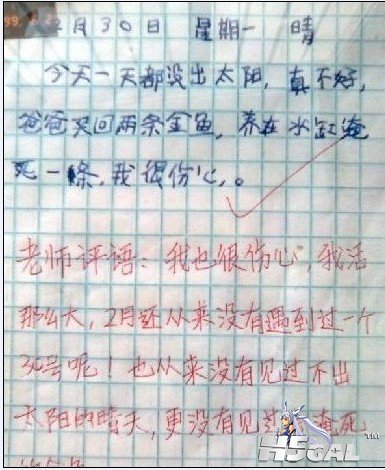 2月30日 星期一 晴
今天一天都没出太阳，真不好，
爸爸买回两条金鱼，养在水缸淹
死一條，我很伤心，。
老师评语：我也很伤心，我活
那么大，2月还从来没有遇到过一个
30号呢！也从来没有见过不出
太阳的晴天，更没有见过 淹死